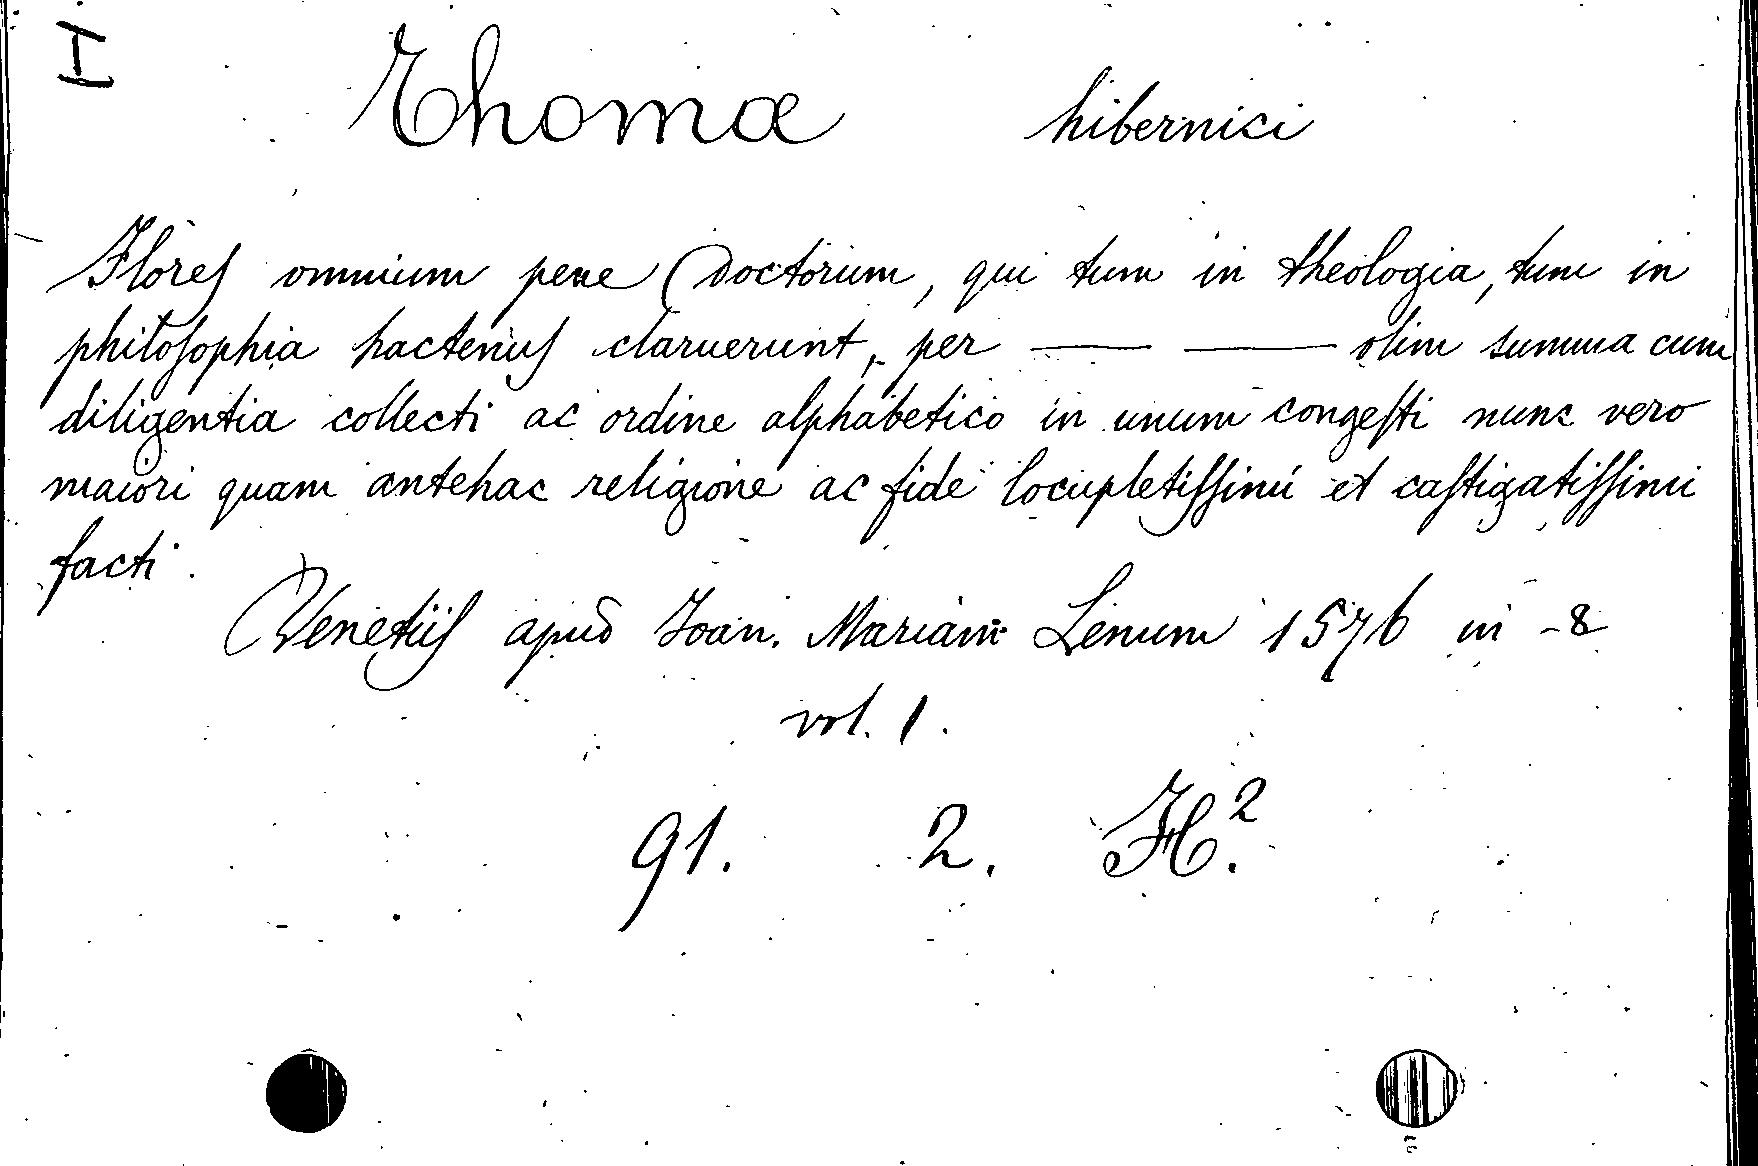 I
Thomæ hibernici
Flores omnium pene Doctorum, qui tum in theologia, tum in
philosophia hactenus claruerunt, per —— —— olim summa cum
diligentia collecti ac ordine alphabetico in unum congesti nunc vero
maiori quam antehac religione ac fide locupletissimi et castigatissimi
facti.
Venetiis apud Joan. Mariam Lenum 1576 in -8
vol. 1.
91. 2. H.²